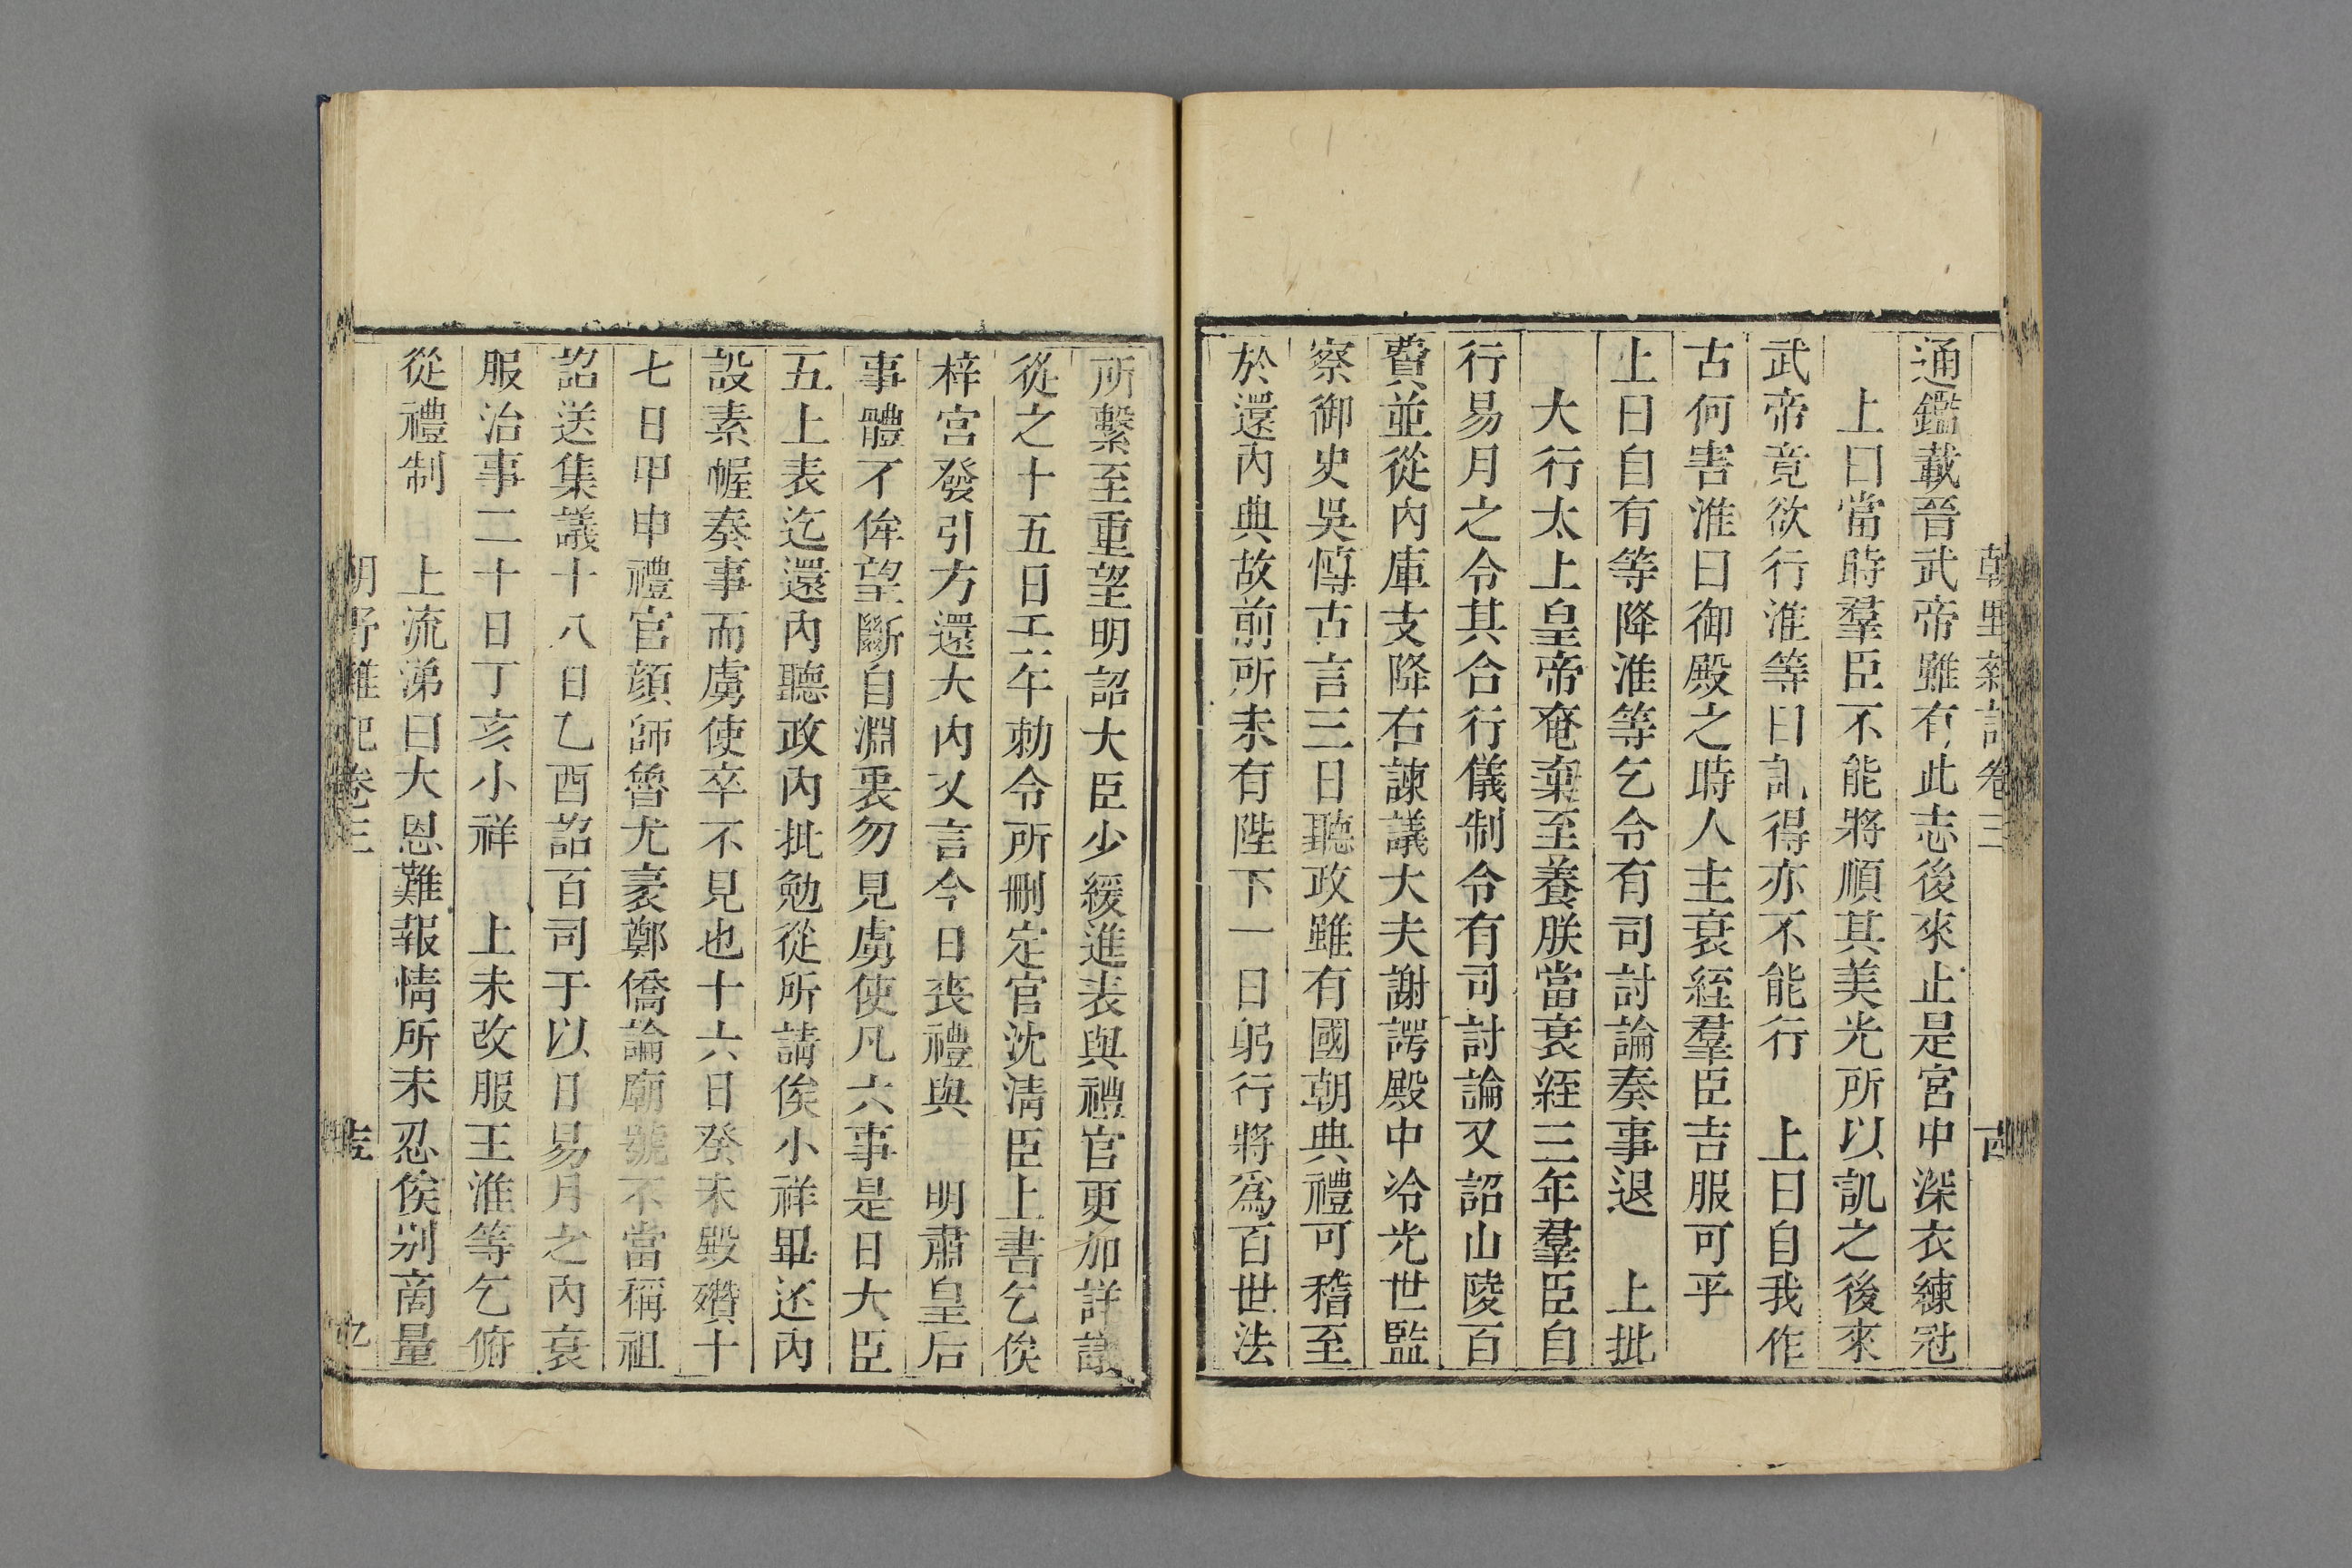 朝野雜記卷三
通鑑載晉武帝雖有此志後來止是宮中深衣練冠
上曰當時羣臣不能將順其美光所以譏之後來
武帝竟欲行淮等曰記得亦不能行　上曰自我作
古何害淮曰御殿之時人主衰絰羣臣吉服可乎
上曰自有等降淮等乞令有司討論奏事退　上批
大行太上皇帝奄棄至養朕當衰絰三年羣臣自
行易月之令其合行儀制令有司討論又詔山陵百
費並從內庫支降右諫議大夫謝諤殿中冷光世監
察御史吳博古言三日聽政雖有國朝典禮可稽至
於還內典故前所未有陛下一日躬行將為百世法
所繫至重望明詔大臣少緩進表與禮官更加詳議
從之十五日壬午勅令所刪定官沈清臣上書乞俟
梓宮發引方還大內又言今日喪禮與　明肅皇后
事體不侔望斷自淵衷勿見虜使凡六事是日大臣
五上表迄還內聽政內批勉從所請俟小祥畢還內
設素幄奏事而虜使卒不見也十六日癸未殿殯十
七日甲申禮官顏師魯尤袤鄭僑論廟號不當稱祖
詔送集議十八日乙酉詔百司于以日易月之內衰
服治事二十日丁亥小祥　上未改服王淮等乞俯
從禮制　上流涕曰大恩難報情所未忍俟別商量
朝野雜記卷三